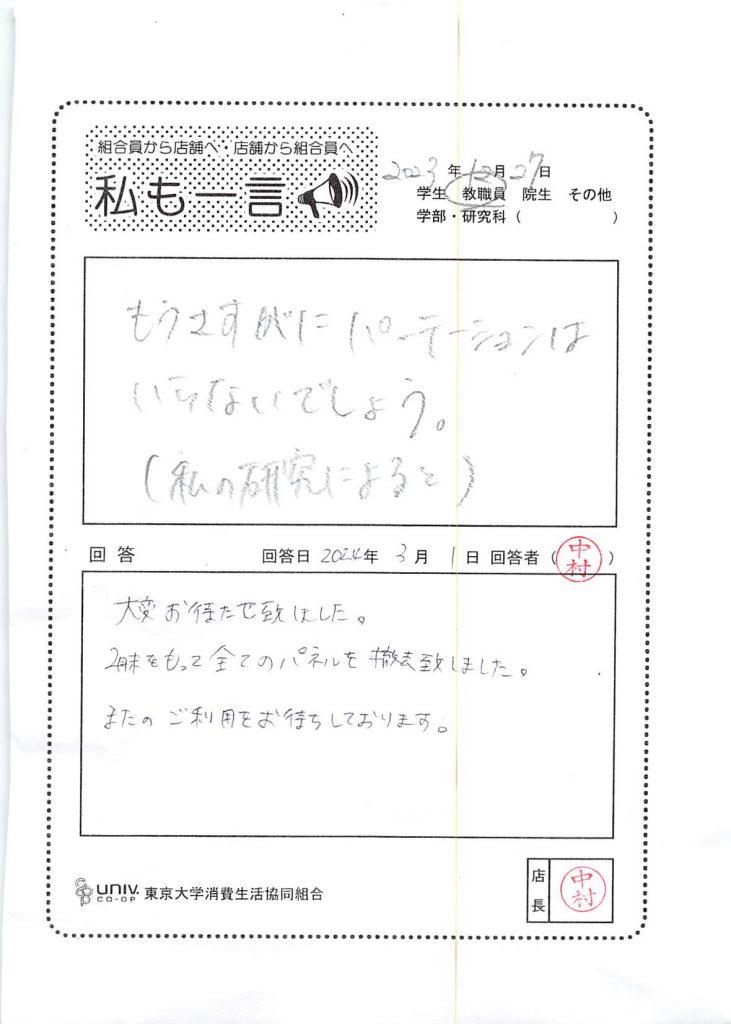 組合員から店舗へ・店舗から組合員へ
私も一言
2023年12月27日
学生 教職員 院生 その他
学部・研究科( )
もうさすがにパーテーションは
いらないでしょう。
(私の研究によると)
回答 回答日 2024年 3月 1日 回答者(中村)
大変お待たせ致しました。
2月末をもって全てのパネルを撤去致しました。
またのご利用をお待ちしております。
UNIV. CO-OP 東京大学消費生活協同組合
店長 中村